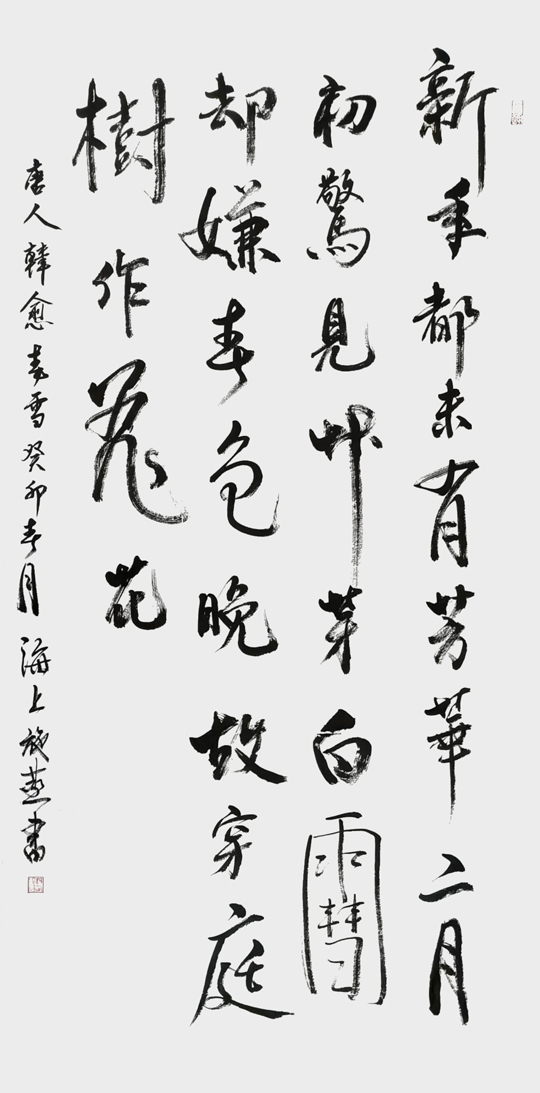 新年都未有芳華二月
初驚見草芽白雪
却嫌春色晚故穿庭
樹作飛花
唐人韓愈春雪癸卯春月海上施燕書